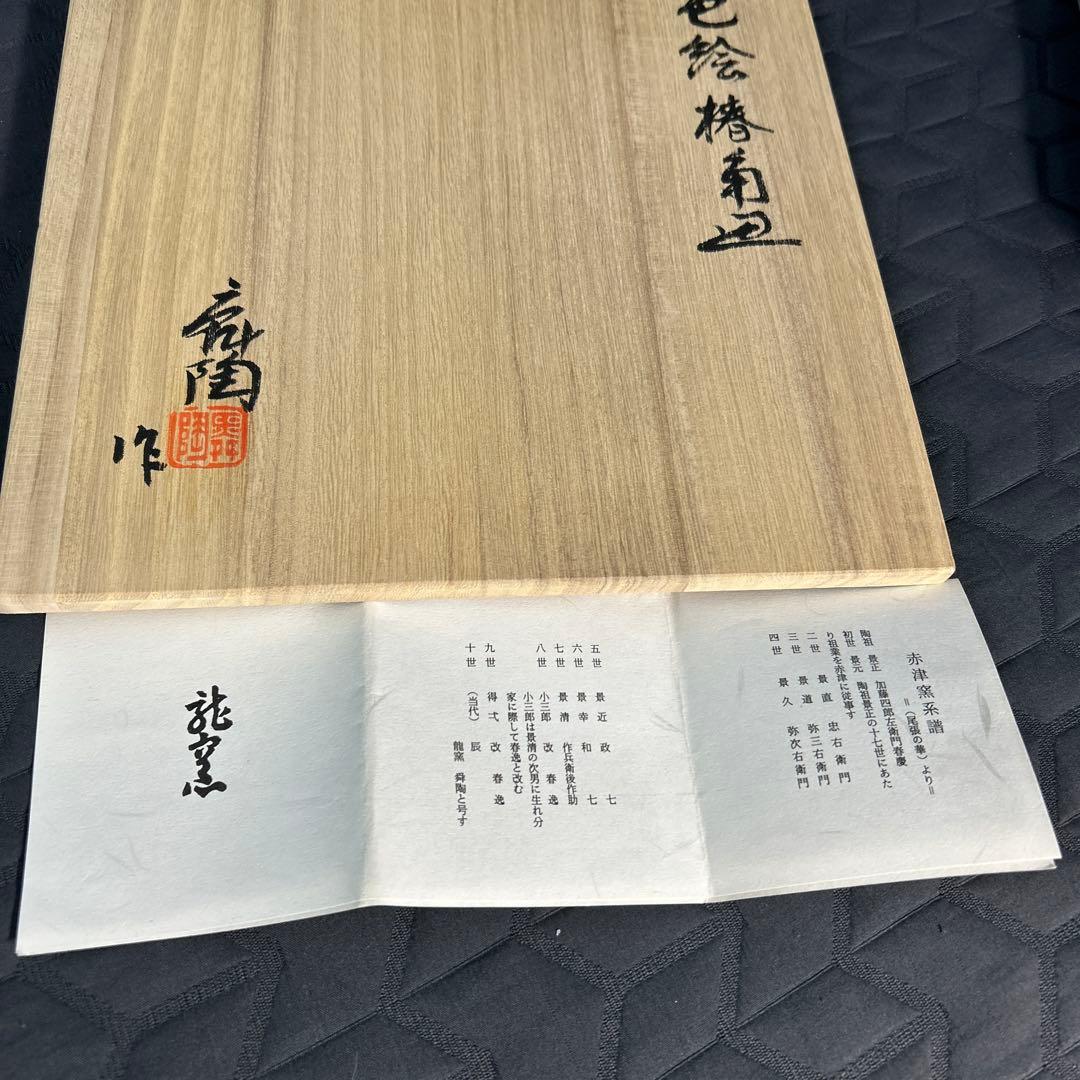 色絵椿菊皿
舜陶
作
舜陶
赤津窯系譜
=(尾張の華)より=
陶祖 景正 加藤四郎左衛門春慶
初世 景元 陶祖景正の十七世にあた
り祖業を赤津に従事す
二世 景直 忠右衛門
三世 景道 弥三右衛門
四世 景久 弥次右衛門
五世 景近 政七
六世 景幸 和七
七世 景清 作兵衛後作助
八世 小三郎 改春逸
小三郎は景清の次男に生れ分
家に際して春逸と改む
九世 得弌 改春逸
十世 (当代) 辰 龍窯 舜陶と号す
龍窯